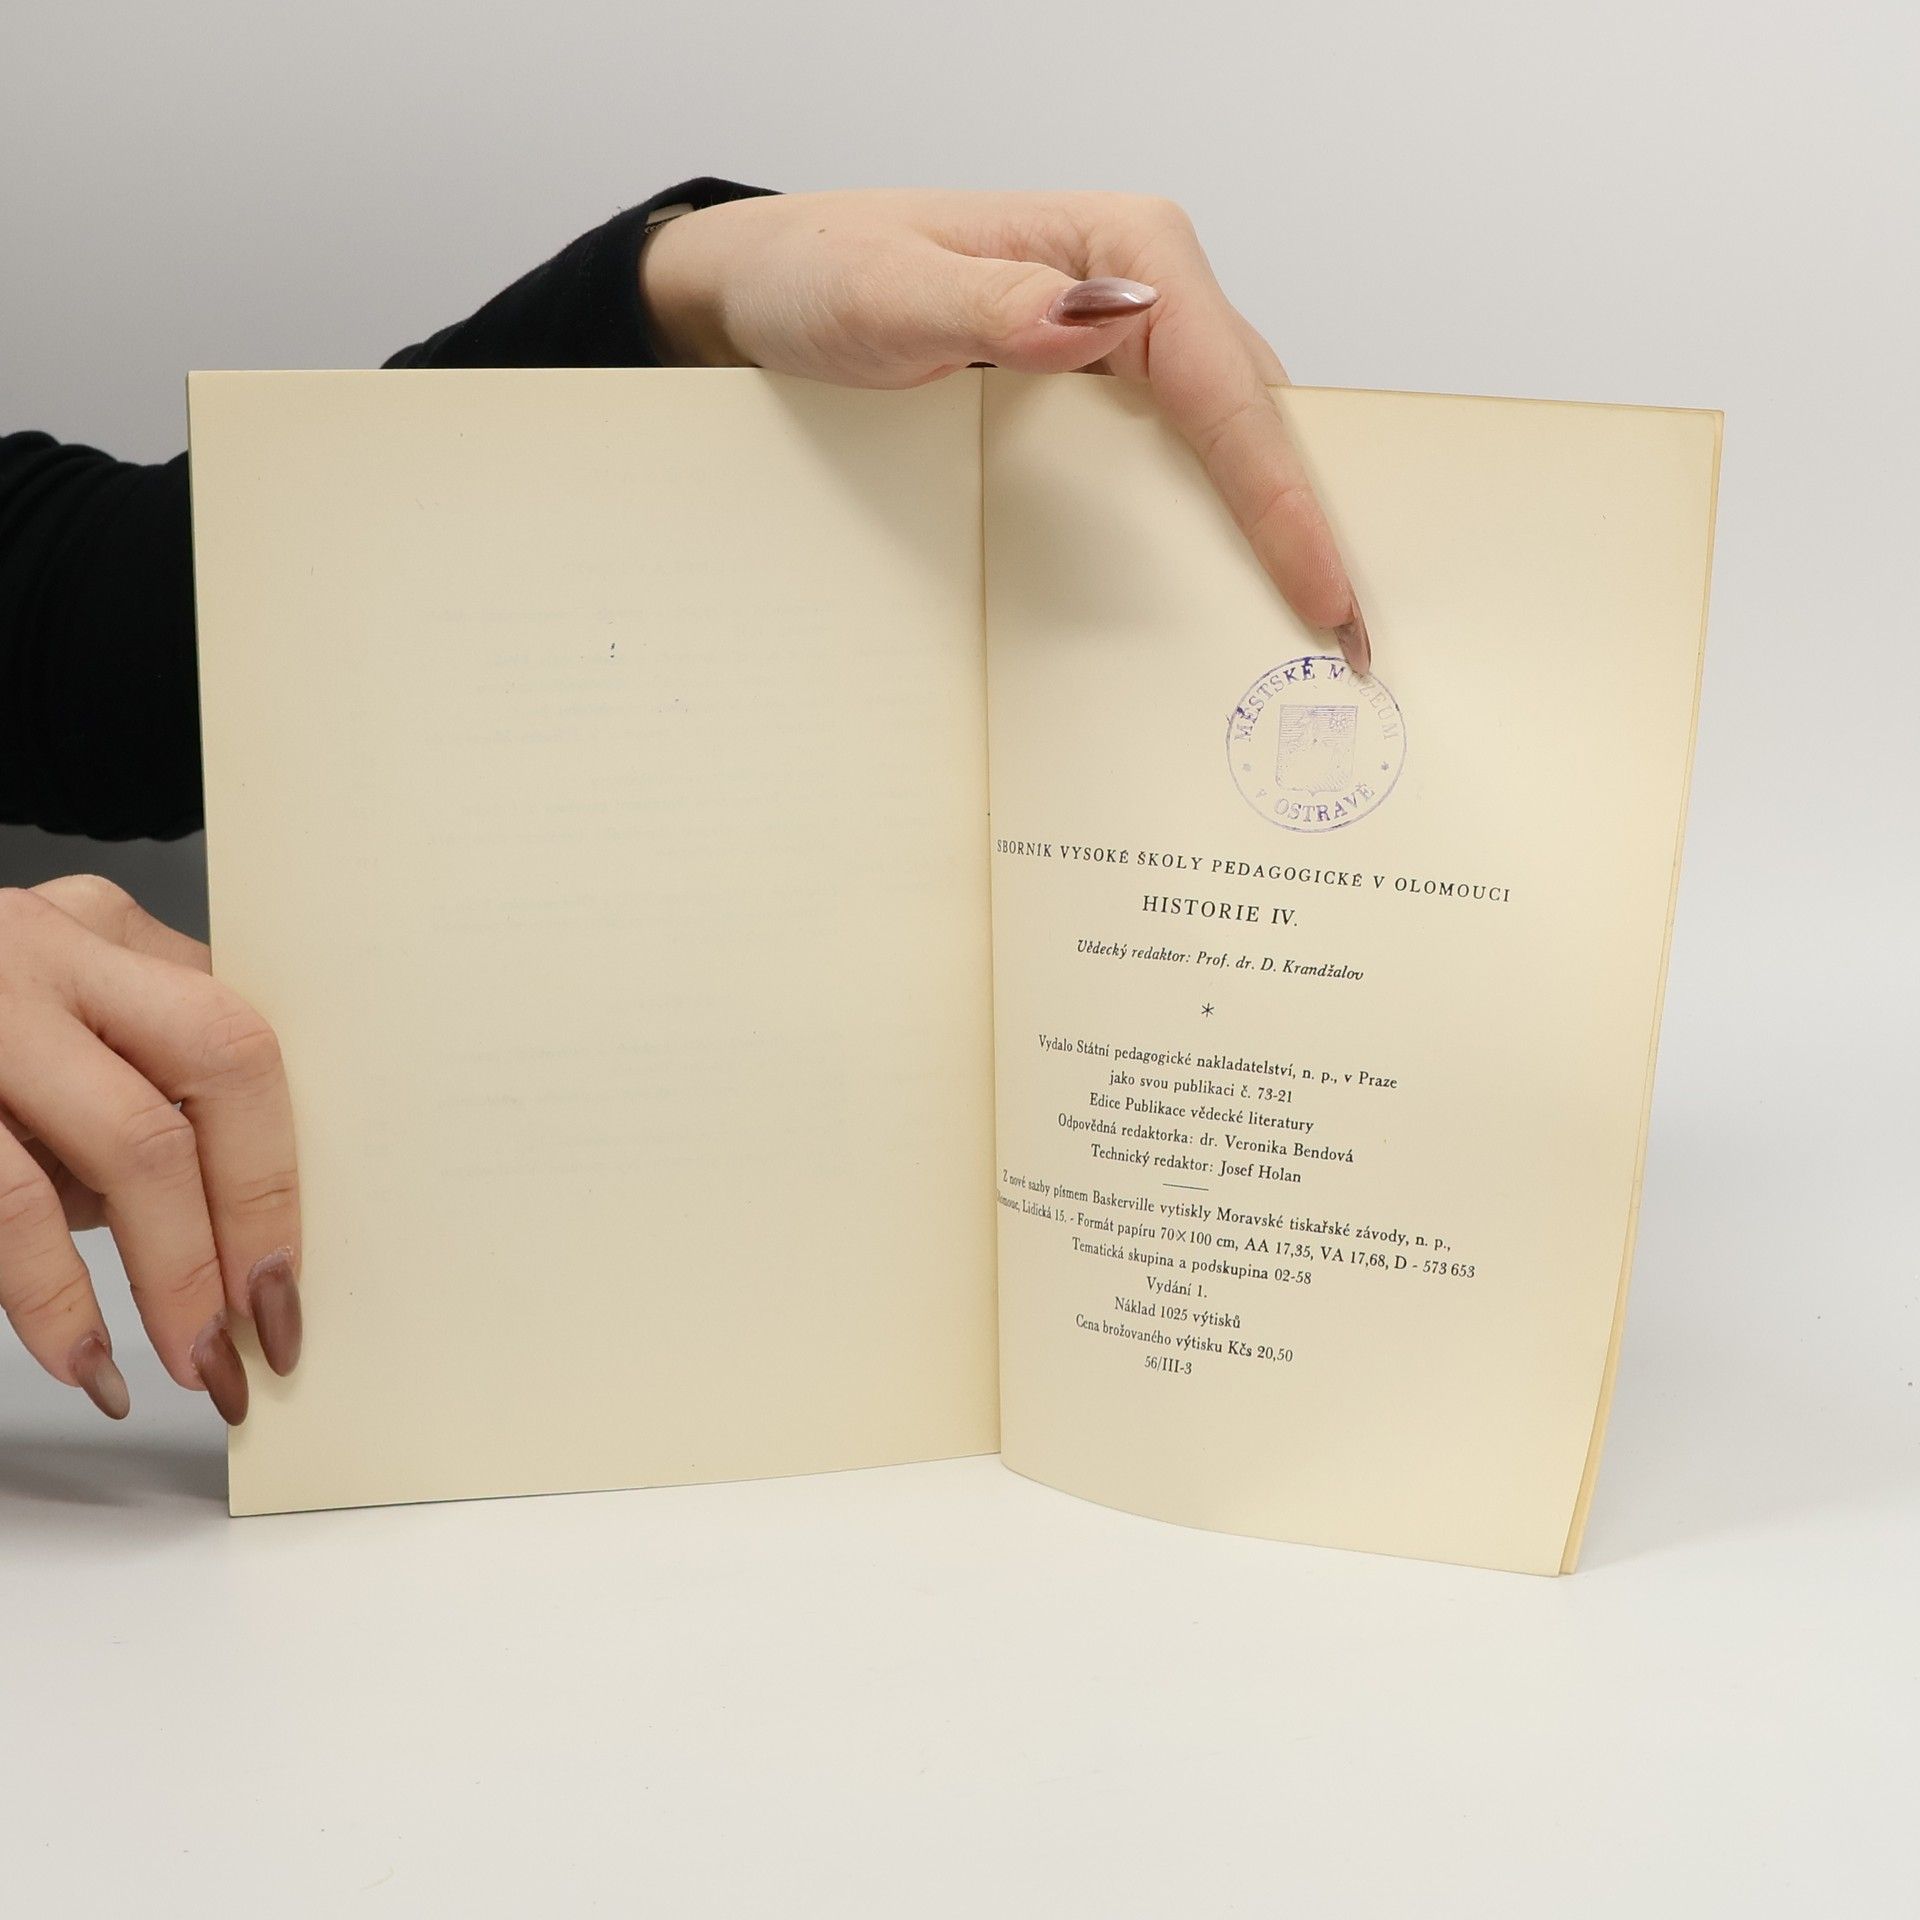 MĚSTSKÉ MUZEUM
V OSTRAVĚ
SBORNÍK VYSOKÉ ŠKOLY PEDAGOGICKÉ V OLOMOUCI
HISTORIE IV.
Vědecký redaktor: Prof. dr. D. Krandžalov
*
Vydalo Státní pedagogické nakladatelství, n. p., v Praze
jako svou publikaci č. 73-21
Edice Publikace vědecké literatury
Odpovědná redaktorka: dr. Veronika Bendová
Technický redaktor: Josef Holan
Z nové sazby písmem Baskerville vytiskly Moravské tiskařské závody, n. p.,
Olomouc, Lidická 15. - Formát papíru 70×100 cm, AA 17,35, VA 17,68, D - 573 653
Tematická skupina a podskupina 02-58
Vydání 1.
Náklad 1025 výtisků
Cena brožovaného výtisku Kčs 20,50
56/III-3